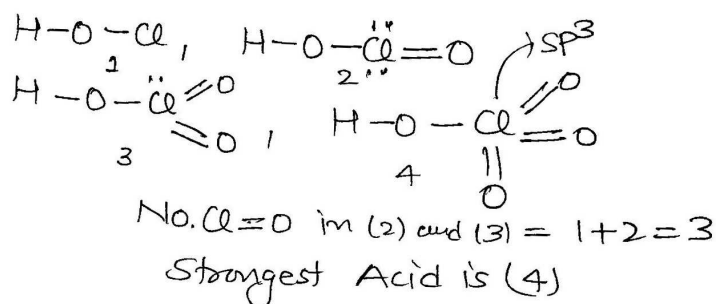 H-O-Cl, H-O-Cl=O sp³
1 2
H-O-Cl=O =O , H-O-Cl=O =O =O
3 4
No. Cl=O in (2) and (3) = 1+2=3
Strongest Acid is (4)